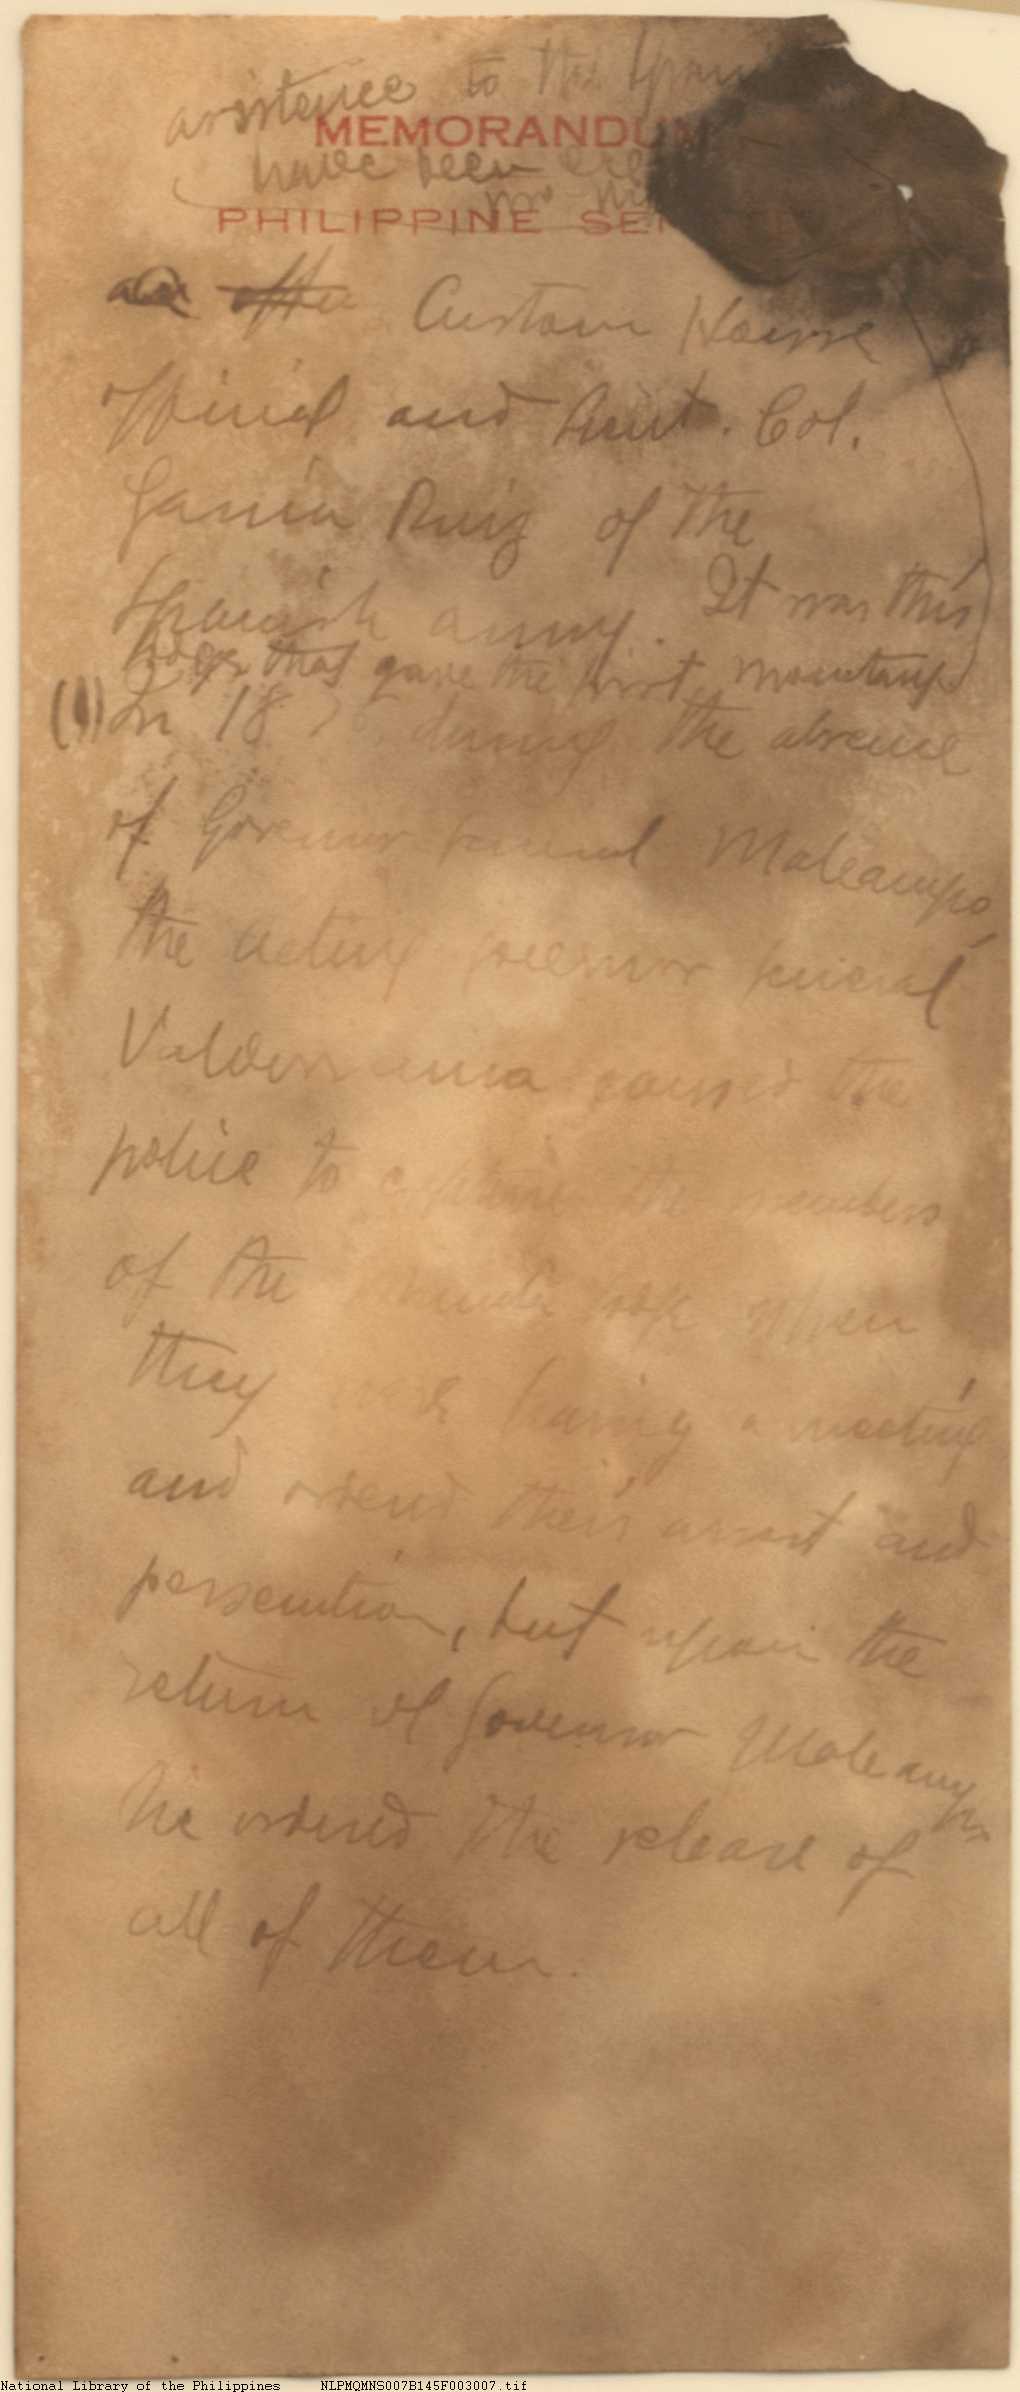 assistance to the
MEMORANDUM
have been
PHILIPPINE SE
Custom House
official and Lieut. Col.
Garcia Ruiz of the
Spanish army. It was this
that gave the first
(1) In 18 during the absence
of Governor General Malcampo
the acting governor general
Valderrama caused the
police to capture the members
of the when
they were having a meeting
and ordered their arrest and
persecution, but upon the
return of Governor Malcampo
he ordered the release of
all of them.
National Library of the Philippines NLPMQMNS007B145F003007.tif